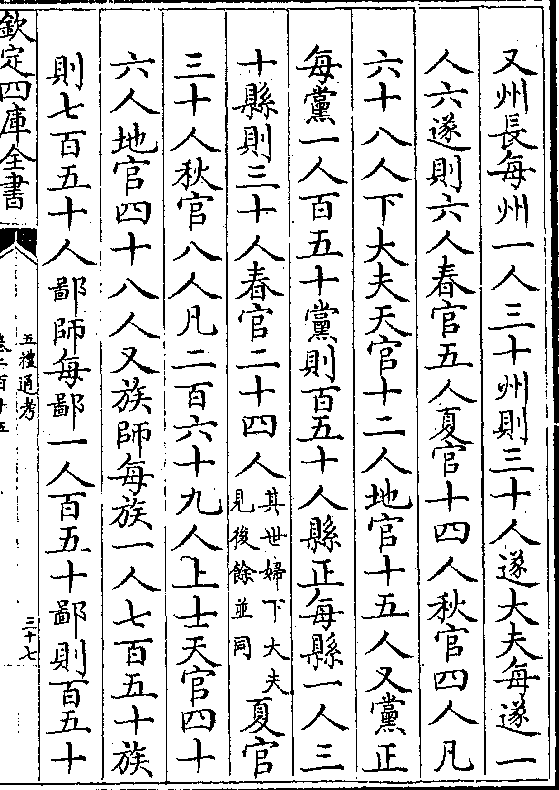 又州長每州一人三十州則三十人遂大夫每遂一
人六遂則六人春官五人夏官十四人秋官四人凡
六十八人下大夫天官十二人地官十五人又黨正
每黨一人百五十黨則百五十人縣正每縣一人三
十縣則三十人春官二十四人其世婦下大夫見後餘並同夏官
三十人秋官八人凡二百六十九人上士天官四十
六人地官四十八人又族師每族一人七百五十族
則七百五十人鄙師每鄙一人百五十鄙則百五十
欽定四庫全書
五禮通考
卷二百十五
三十七